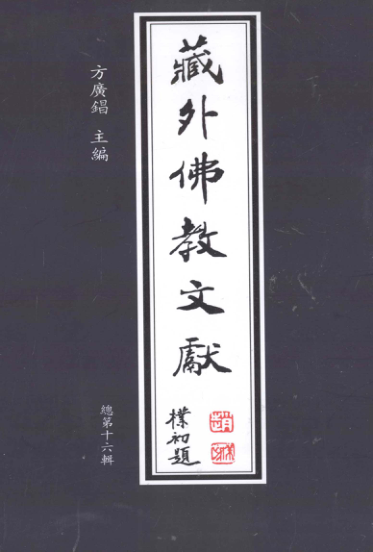 藏外佛教文獻
樸初題
方廣錩 主編
總第十六輯